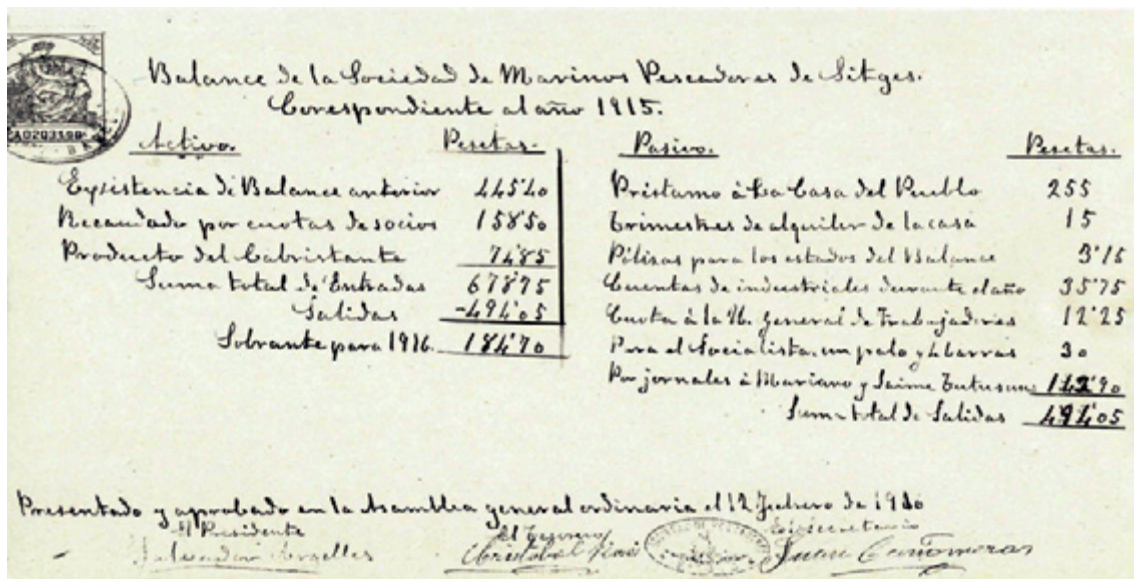 A0203190
Balance de la Sociedad de Marinos Pescadores de Sitges.
Corespondiente al año 1915.
Activo. Pesetas.
Epsistencia di Balance anterior 445'40
Recaudado por cuotas de socios 158'50
Producto del Cabristante 74'85
Suma total de Entradas 678'75
Salidas -494'05
Sobrante para 1916. 184'70
Pasivo. Pesetas.
Préstamo á La Casa del Pueblo 255
trimestres de alquiler de la casa 15
Pólisas para los estados del Balance 3'15
Cuentas de industriales durante el año 35'75
Cuota á la U. general de Trabajadores 12'25
Para el Socialista, un palo y 4 barras 30
Por jornales á Mariano y Jaime 142'90
Suma total de Salidas 494'05
Presentado y aprobado en la Asamblea general ordinaria el 12 Febrero de 1916
El Presidente El Tesorero El Secretario
Salvador Cristobal Juan